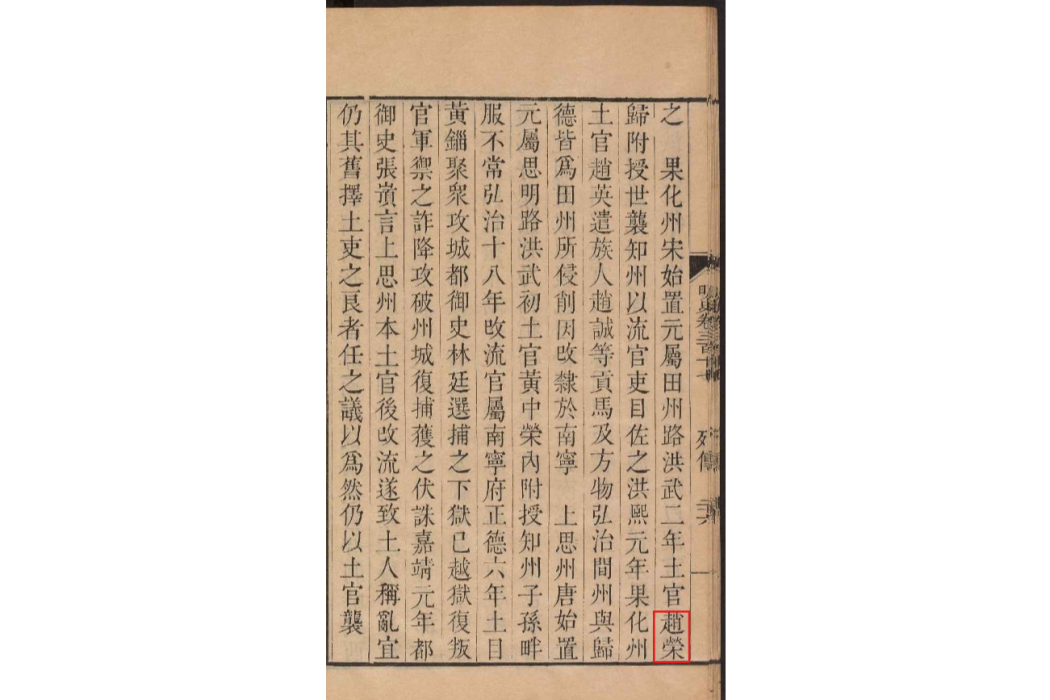 之　果化州宋始置元屬田州路洪武二年土官趙榮
歸附授世襲知州以流官吏目佐之洪熙元年果化州
土官趙英遣族人趙誠等貢馬及方物弘治間州與歸
德皆爲田州所侵削因改隸於南寧　上思州唐始置
元屬思明路洪武初土官黃中榮內附授知州子孫畔
服不常弘治十八年改流官屬南寧府正德六年土目
黃錙聚眾攻城都御史林廷選捕之下獄已越獄復叛
官軍禦之詐降攻破州城復捕獲之伏誅嘉靖元年都
御史張嵿言上思州本土官後改流遂致土人稱亂宜
仍其舊擇土吏之良者任之議以爲然仍以土官襲
明史卷三百十七
列傳